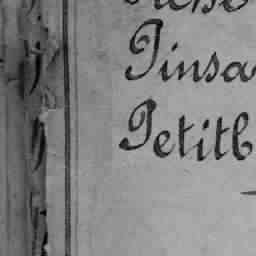 Pinsa
Petitb